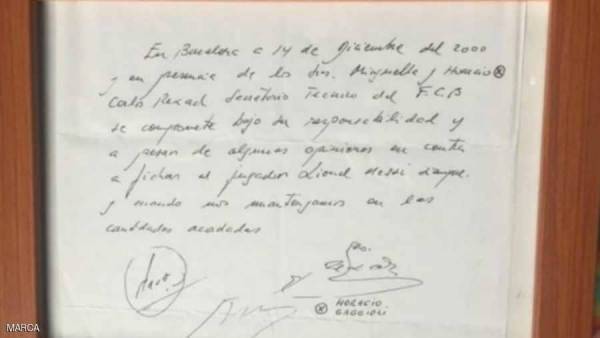 En Barcelona a 14 de Diciembre del 2000
y en presencia de los Srs. Minguella y Horacio
Carlos Rexach Secretario Tecnico del F.C.B
se compromete bajo su responsabilidad y
a pesar de algunas opiniones en contra
a fichar al jugador Lionel Messi siempre
y cuando nos mantengamos en las
cantidades acordadas
HORACIO
GAGGIOLI
MARCA